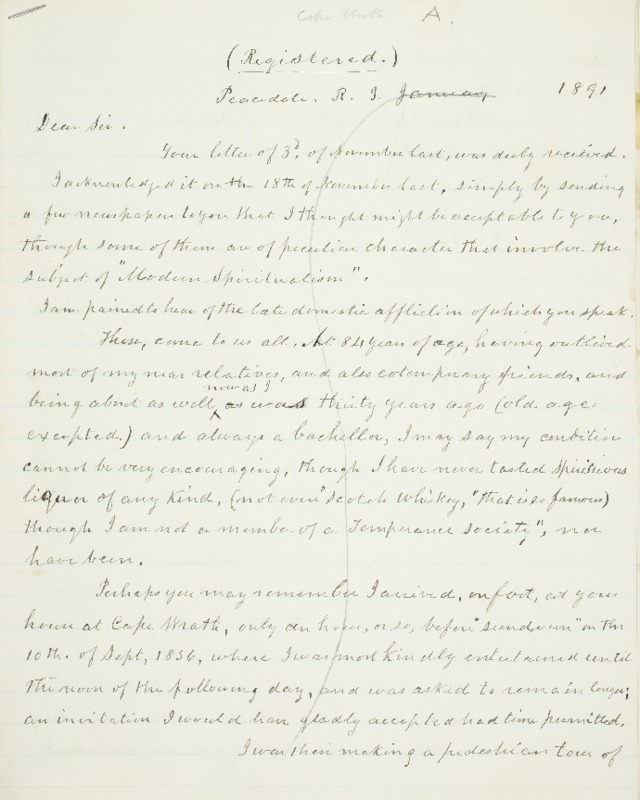 Cape Wrath A.
(Registered.)
Peacedale. R. I. January 1891
Dear Sir.
Your letter of 3d. of November last, was duly received.
I acknowledged it on the 18th of November last, simply by sending
a few newspapers to you that I thought might be acceptable to you,
though some of them are of peculiar character that involve the
subject of "Modern Spiritualism".
I am pained to hear of the late domestic affliction of which you speak.
These, come to us all. At 84 years of age, having outlived
most of my near relatives, and also cotemporary friends, and
being about as well now as I was thirty years ago (old age
excepted.) and always a bachellor, I may say my condition
cannot be very encouraging, though I have never tasted spirituous
liquor of any kind, (not even "Scotch Whiskey," that is so famous)
though I am not a member of a "Temperance Society", nor
have been.
Perhaps you may remember I arrived, on foot, at your
house at Cape Wrath, only an hour, or so, before "sundown" on the
10th. of Sept, 1856, where I was most kindly entertained until
the noon of the following day, and was asked to remain longer;
an invitation I would have gladly accepted had time permitted.
I was then making a pedestrian tour of